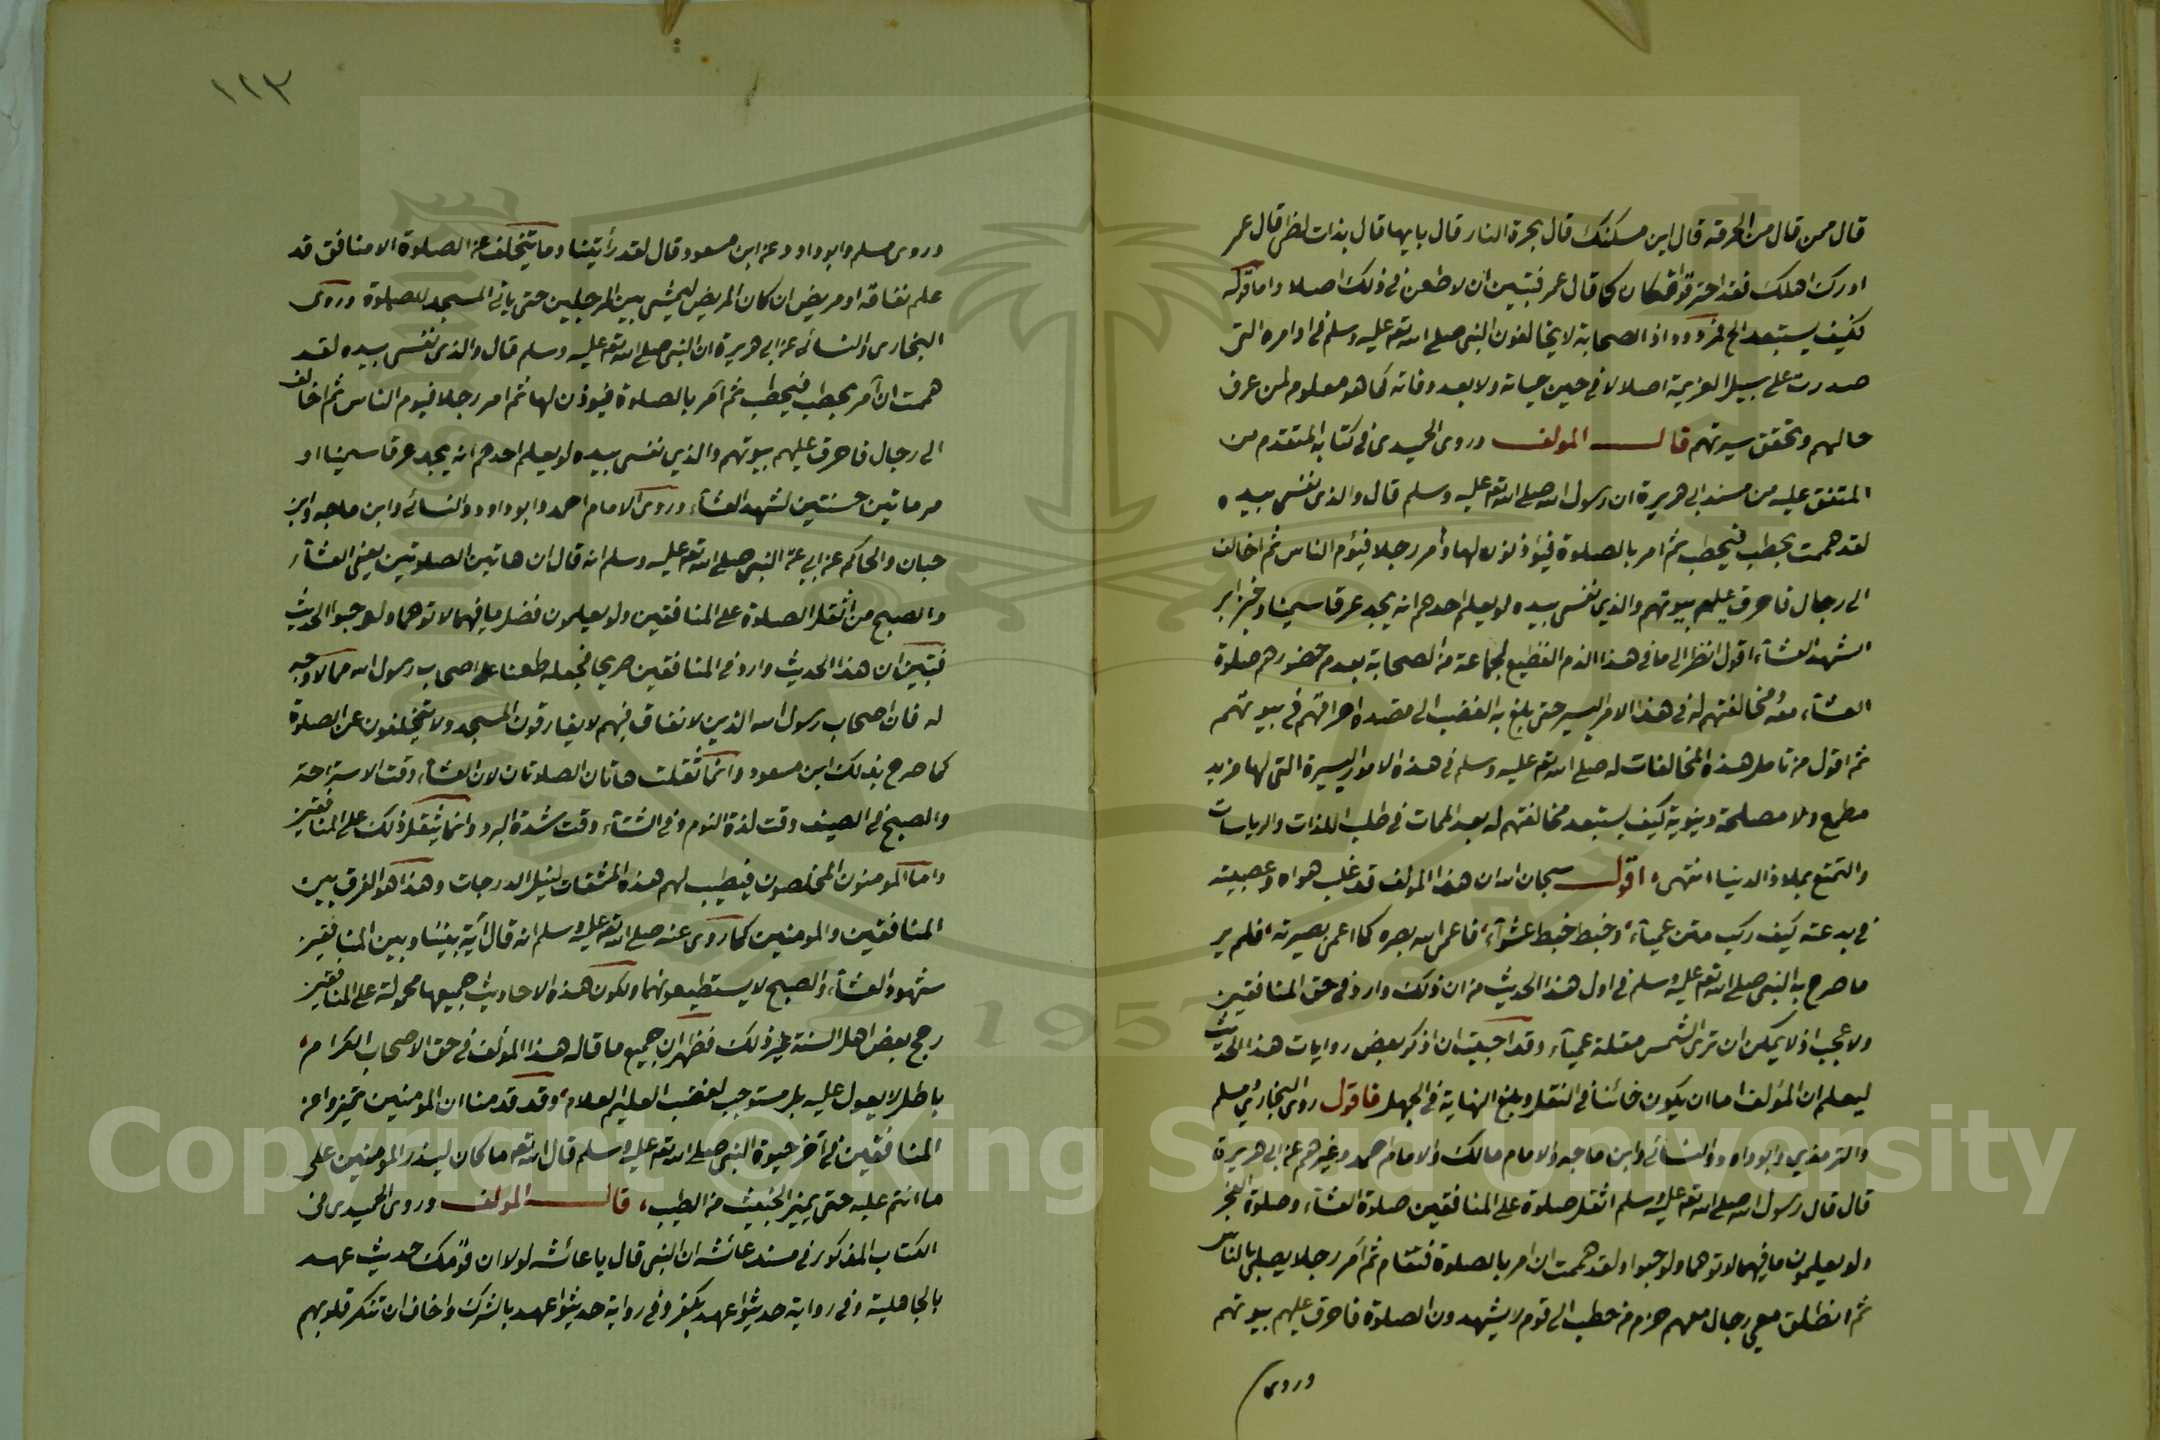 قال ممن قال من الحرقة قال اين مسكنك قال بحرة النار قال بايها قال بذات لظى قال عمر
ادرك اهلك فقد احترقوا فكان كما قال عمر فتبين ان لا طعن في ذلك اصلا واما قوله
فكيف يستبعد الخ فمردود اذ الصحابة لا يخالفون النبي صلى الله تع عليه وسلم في اوامره التي
صدرت على سبيل العزيمة اصلا لا في حين حياته ولا بعد وفاته كما هو معلوم لمن عرف
حالهم وتحقق سيرتهم قال المولف وروى الحميدى في كتابه المتقدم من
المتفق عليه من مسند ابي هريرة ان رسول الله صلى الله تع عليه وسلم قال والذى نفسى بيده
لقد هممت بحطب فيحطب ثم امر بالصلوة فيؤذن لها وأمر رجلا فيؤم الناس ثم اخالف
الى رجال فاحرق عليهم بيوتهم والذي نفسى بيده لو يعلم احدهم انه يجد عرقا سمينا و
لشهد العشآء اقول انظر الى ما في هذا الذم الفظيع لجماعة من الصحابة بعدم حضورهم صلوة
العشآء معه مخالفتهم له في هذا الامر اليسير حتى بلغ به الغضب الى قصده احراقهم في بيوتهم
ثم اقول من تأمل هذه المخالفات له صلى الله تع عليه وسلم في هذه الامور اليسيرة التي لها مزيد
مطمع ولا مصلحة دينوية كيف يستبعد مخالفتهم له بعد الممات في طلب اللذات والرياسات
والتمتع بملاذ الدنيا انتهى، اقول سبحان الله ان هذا المولف قد غلب هواه وعصبيته
في بدعته كيف ركب متن عميآء، وخبط خبط عشوآء، فاعمى الله بصره كما اعمى بصيرته، فلم ير
ما صرح به النبي صلى الله تع عليه وسلم في اول هذا الحديث من ان ذلك وارد في حق المنافقين
ولا عجب اذ لا يمكن ان ترى الشمس مقلة عميآء وقد احببت ان اذكر بعض روايات هذا الحديث
ليعلم ان المؤلف اما ان يكون خائنا في النقل وبلغ النهاية في الجهل فاقول روى البخارى ومسلم
والترمذي وابو داود والنسائى وابن ماجه والامام مالك والامام احمد وغيرهم عن ابي هريرة
قال قال رسول الله صلى الله تع عليه وسلم اثقل صلوة على المنافقين صلوة العشآء وصلوة الفجر
ولو يعلمون ما فيهما لاتوهما ولو حبوا ولقد هممت ان امر بالصلوة فتقام ثم آمر رجلا يصلى بالناس
ثم انطلق معي رجال معهم حزم من حطب الى قوم لا يشهدون الصلوة فاحرق عليهم بيوتهم
وروى
١٢٣
وروى مسلم وابو داود عن ابن مسعود قال لقد رأيتنا وما يتخلف عن الصلوة الا منافق قد
علم نفاقه او مريض ان كان المريض ليمشى بين الرجلين حتى ياتي المسجد للصلوة وروى
البخارى والنسائى عن ابي هريرة ان النبي صلى الله تع عليه وسلم قال والذى نفسى بيده لقد
هممت ان آمر بحطب فيحطب ثم آمر بالصلوة فيؤذن لها ثم امر رجلا فيوم الناس ثم اخالف
الى رجال فاحرق عليهم بيوتهم والذي نفسى بيده لو يعلم احدهم انه يجد عرقا سمينا او
مرماتين حسنتين لشهد العشآء وروى الامام احمد وابو داود والنسائى وابن ماجه وابن
حبان والحاكم عن ابي عن النبي صلى الله تع عليه وسلم انه قال ان هاتين الصلوتين يعني العشآء
والصبح من اثقل الصلوة على المنافقين ولو يعلمون فضل ما فيهما لاتوهما ولو حبوا الحديث
فتبين ان هذا الحديث وارد في المنافقين صريحا فجعله طعنا على اصحاب رسول الله مما لا وجه
له فان اصحاب رسول الله الذين لا نفاق فيهم لا يفارقون المسجد ولا يتخلفون عن الصلوة
كما صرح بذلك ابن مسعود وانما ثقلت هاتان الصلوتان لان العشآء وقت الاستراحة
والصبح في الصيف وقت لذة النوم وفي الشتآء وقت شدة البرد وانما يثقل ذلك على المنافقين
واما المومنون المخلصون فيطيب لهم هذه المشقات لنيل الدرجات وهذا هو الفرق بين
المنافقين والمومنين كما روى عنه صلى الله تع عليه وسلم انه قال آية بيننا وبين المنافقين
شهود العشآء والصبح لا يستطيعونهما ولكون هذه الاحاديث جميعها محمولة على المنافقين
رجح بعض اهل السنة غير ذلك فظهر ان جميع ما قاله هذا المؤلف في حق الاصحاب الكرام،
باطل لا يعول عليه بل مستوجب لغضب العليم العلام، وقد قدمنا ان المومنين تميزوا من
المنافقين في آخر حيوة النبي صلى الله تع عليه وسلم قال الله تع ما كان ليذر المومنين على
ما انتم عليه حتى يميز الخبيث من الطيب، قال المولف وروى الحميدى في
الكتاب المذكور في مسند عائشه ان النبى قال يا عائشه لولا ان قومك حديث عهد
بالجاهلية وفي رواية حديثوا عهد بكفر وفي رواية حديثوا عهد بالشرك واخاف ان تنكر قلوبهم
Copyright © King Saud University
1957